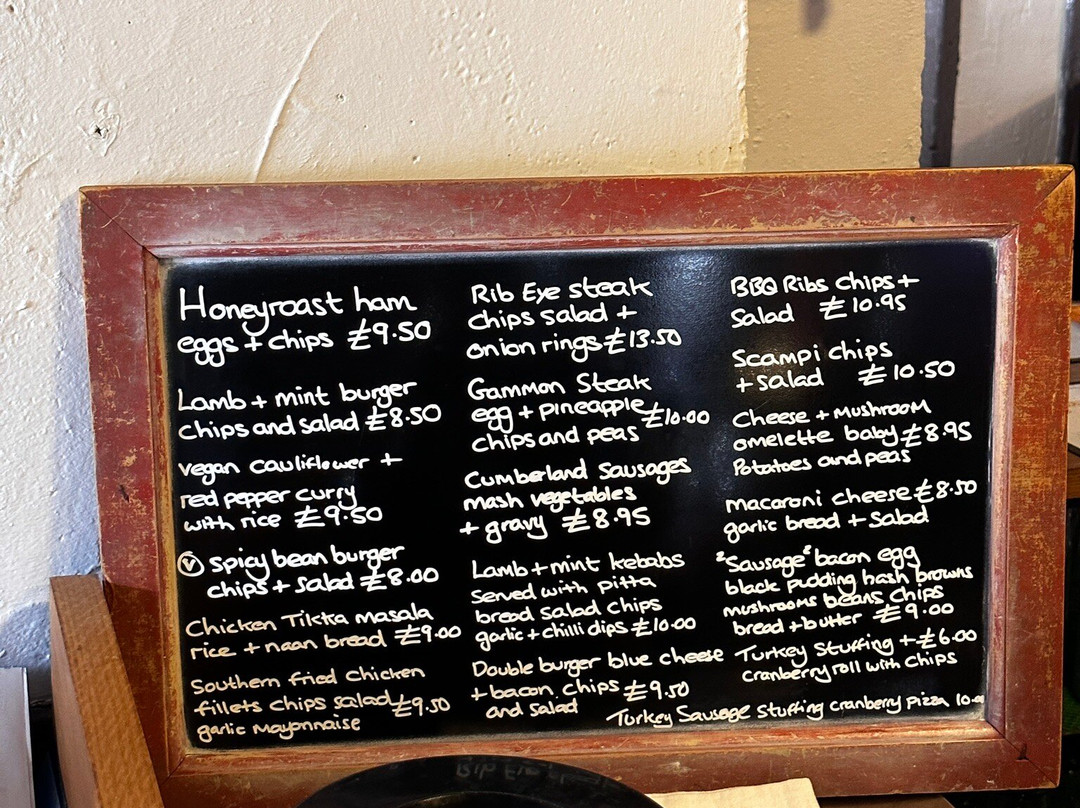 Honeyroast ham
eggs + chips £9.50
Lamb + mint burger
chips and salad £8.50
vegan cauliflower +
red pepper curry
with rice £9.50
Ⓥ spicy bean burger
chips + salad £8.00
Chicken Tikka masala
rice + naan bread £9.00
Southern fried chicken
fillets chips salad £9.50
garlic mayonnaise
Rib Eye steak
chips salad +
onion rings £13.50
Gammon Steak
egg + pineapple £10.00
chips and peas
Cumberland Sausages
mash vegetables
+ gravy £8.95
Lamb + mint kebabs
served with pitta
bread salad chips
garlic + chilli dips £10.00
Double burger blue cheese
+ bacon chips £9.50
and salad
BBQ Ribs chips +
Salad £10.95
Scampi chips
+ salad £10.50
Cheese + mushroom
omelette baby £8.95
Potatoes and peas
macaroni cheese £8.50
garlic bread + salad
²Sausage² bacon egg
black pudding hash browns
mushrooms beans chips
bread + butter £9.00
Turkey stuffing + £6.00
cranberry roll with chips
Turkey Sausage stuffing cranberry pizza 10.00